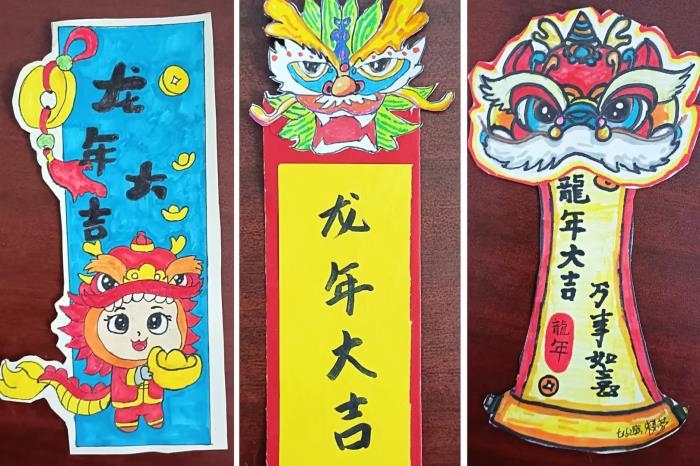 龙年大吉
龙年大吉
龍年大吉
万事如意
龍年